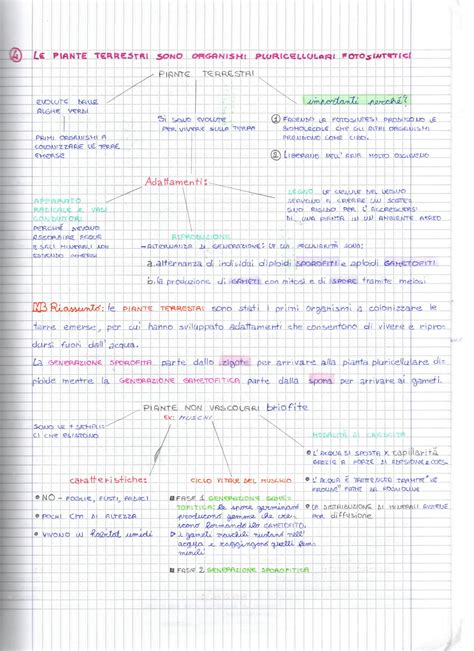 4 LE PIANTE TERRESTRI SONO ORGANISMI PLURICELLULARI FOTOSINTETICI
PIANTE TERRESTRI
EVOLUTE DALLE
ALGHE VERDI
PRIMI ORGANISMI A
COLONIZZARE LE TERRE
EMERSE
SI SONO EVOLUTE
PER VIVERE SULLA TERRA
importanti perché?
1 FACENDO LA FOTOSINTESI PRODUCONO LE
BIOMOLECOLE CHE GLI ALTRI ORGANISMI
PRENDONO COME CIBO.
2 LIBERANO NELL'ARIA MOLTO OSSIGENO
Adattamenti:
APPARATO
RADICALE E VASI
CONDUTTORI:
PERCHÉ DEVONO
ASSORBIRE ACQUA
E SALI MINERALI NON
ESSENDO IMMERSI
LEGNO: LE CELLULE DEL LEGNO
SERVONO A CREARE UN SOSTE-
GNO RIGIDO PER L'ACCRESCERSI
DI UNA PIANTA IN UN AMBIENTE AEREO
RIPRODUZIONE
ALTERNANZA DI GENERAZIONE: LE CUI PECULIARITÀ SONO:
a. alternanza di individui diploidi SPOROFITI e aploidi GAMETOFITI
b. la produzione di GAMETI con mitosi e di SPORE tramite meiosi
NB Riassunto: le PIANTE TERRESTRI sono stati i primi organismi a colonizzare le
terre emerse, per cui hanno sviluppato Adattamenti che consentono di vivere e ripro
dursi fuori dall'acqua.
La GENERAZIONE SPOROFITA parte dallo zigote per arrivare alla pianta pluricellulare di=
ploide mentre la GENERAZIONE GAMETOFITICA parte dalla spora per arrivare ai gameti.
PIANTE NON VASCOLARI briofite
ES: MUSCHI
SONO LE + SEMPLI=
CI CHE ESISTONO
MODALITÀ DI CRESCITA
L'ACQUA SI SPOSTA X capillarità
GRAZIE A FORZE DI ADESIONE E COES.
L'ACQUA È TRATTENUTA TRAMITE LE
LA DISTRIBUZIONE DI MINERALI AVVIENE
PER diffusione
caratteristiche:
NO - FOGLIE, FUSTI, RADICI
POCHI cm DI ALTEZZA
VIVONO IN habitat umidi
CICLO VITALE DEL MUSCHIO
FASE 1 GENERAZIONE GAME=
TOFITICA: le spore germinano
producono gemme che cres=
cono formando il GAMETOFITO.
i gameti maschili nuotano nell'
acqua e raggiungono quelli fem
minili
FASE 2 GENERAZIONE SPOROFITICA